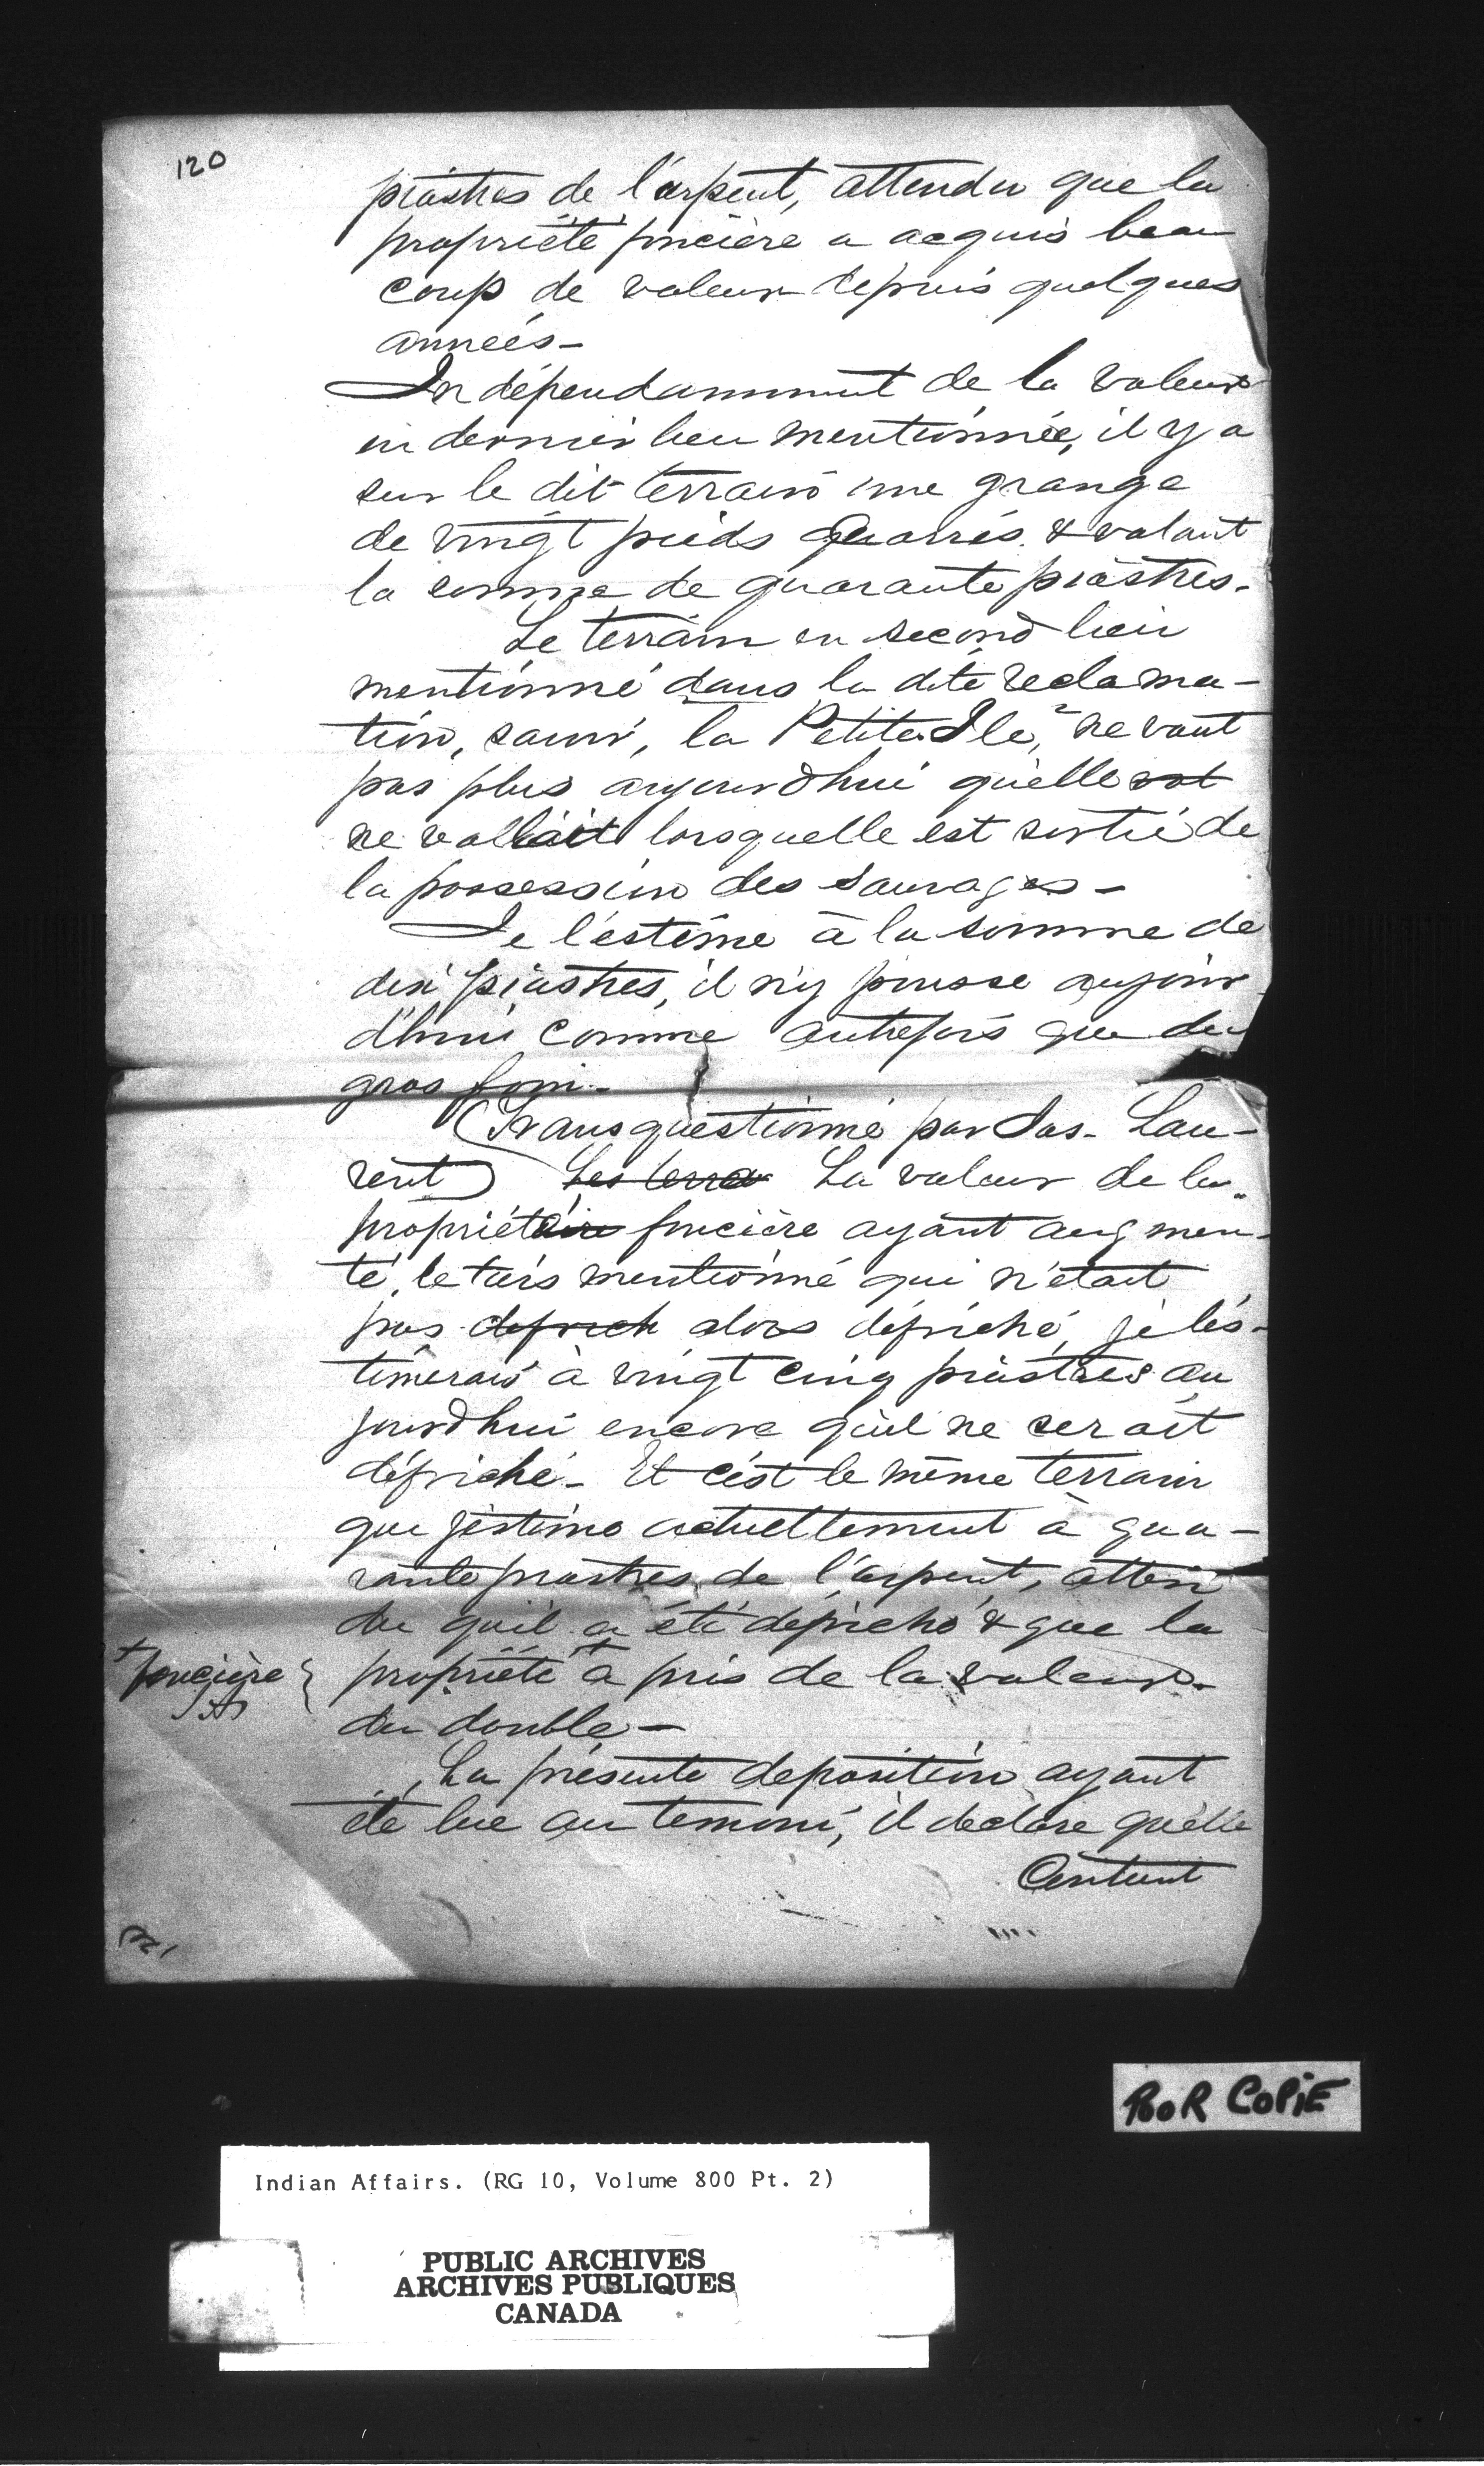 120
piastres de l'arpent, attendu que la
propriété foncière a acquis beau
coup de valeur depuis quelques
années -
Indépendamment de la valeur
en dernier lieu mentionnée, il y a
sur le dit terrain une grange
de vingt pieds quarrés & valant
la somme de quarante piastres.
Le terrain en second lieu
mentionné dans la dite reclama-
tion, savoir, la Petite Ile, ne vaut
pas plus aujourd'hui qu'elle val
ne vallait lorsquelle est sortie de
la possession des sauvages -
Je l'estime à la somme de
dix piastres, il n'y pousse aujour
d'hui comme autrefois que du
gros foin -
(Transquestionné par Jas. Lau-
rent) Les terra La valeur de la
propriétaire foncière ayant augmen-
té, le mentionné qui n'était
pas defrich alors défriché, je l'és-
timerais à vingt cinq piastres au
jourd'hui encore qu'il ne serait
défriché - Et c'est le même terrain
que j'estime actuellement à qua-
rante piastres de l'arpent, atten
du qu'il a été défriché & que la
+ foncière
propriété + a pris de la valeur
du double -
La présente deposition ayant
été lue au temoin, il declare qu'elle
Contient
POOR COPIE
Indian Affairs. (RG 10, Volume 800 Pt. 2)
PUBLIC ARCHIVES
ARCHIVES PUBLIQUES
CANADA